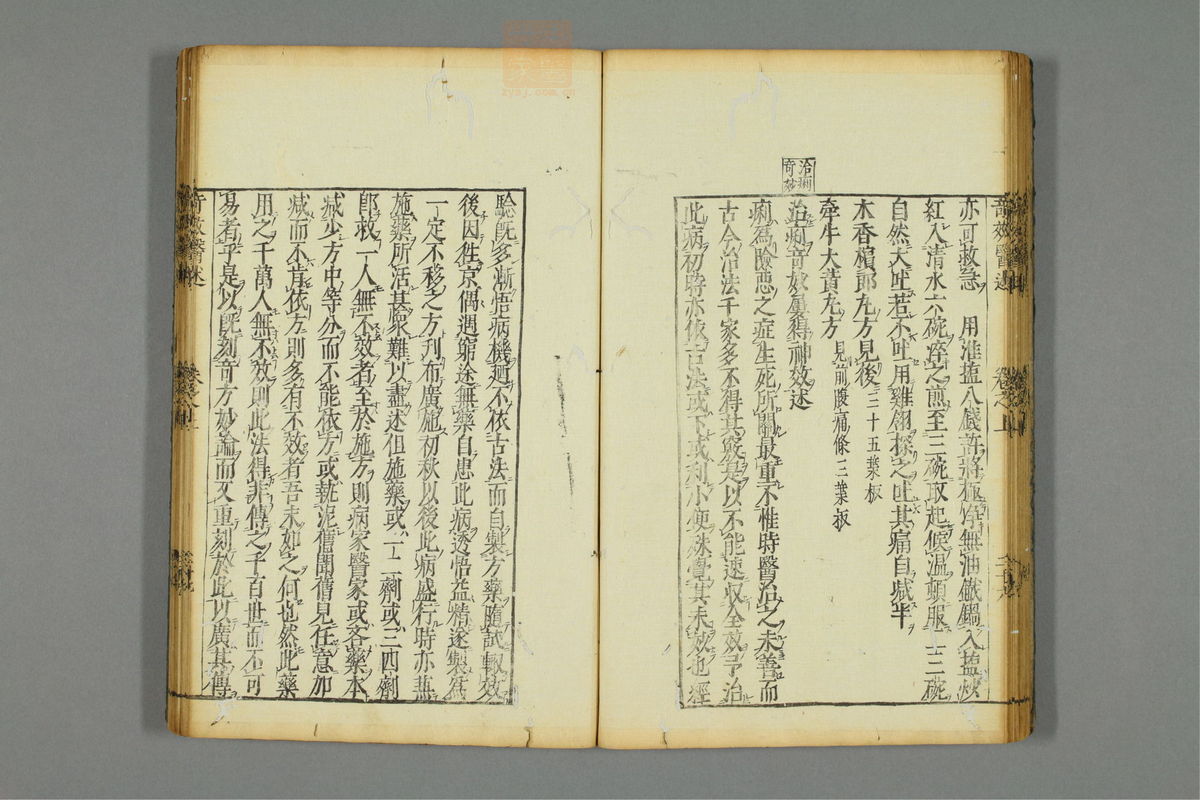 奇效醫述
卷之上
治痢
奇妙
亦可救急 用淮塩八錢許將極淨無油鐵鍋入塩炒
紅入清水六碗淬之煎至三碗取起候溫頓服二三碗
自然大吐若不吐用雞翎探之吐其痛自減半
木香檳郎丸方見後三十五葉板
牽牛大黃丸方見前腹痛條三葉板
治痢奇妙屢得神效述
痢為險惡之症生死所關最重不惟時醫治之未善而
古今治法千家多不得其竅是以不能速収全效予治
此病初時亦依古法或下或利小便殊覺其未妙也經
騐旣多漸悟病機廼不依古法而自製方藥隨試輙效
後因徃京偶遇窮途無藥自患此病透悟益精遂製為
一定不移之方刋布廣施初秋以後此病盛行時亦嘗
施藥所活甚衆難以盡述但施藥或一二劑或三四劑
卽救一人無不效者至於施方則病家醫家或吝藥本
減少方中等分而不能依方或執泥舊聞舊見任意加
減而不肯依方則多有不效者吾未如之何也然此藥
用之千萬人無不效則此法得非傳之千百世而不可
易者乎是以旣刻奇方妙論而又重刻於此以廣其傳
奇效醫述